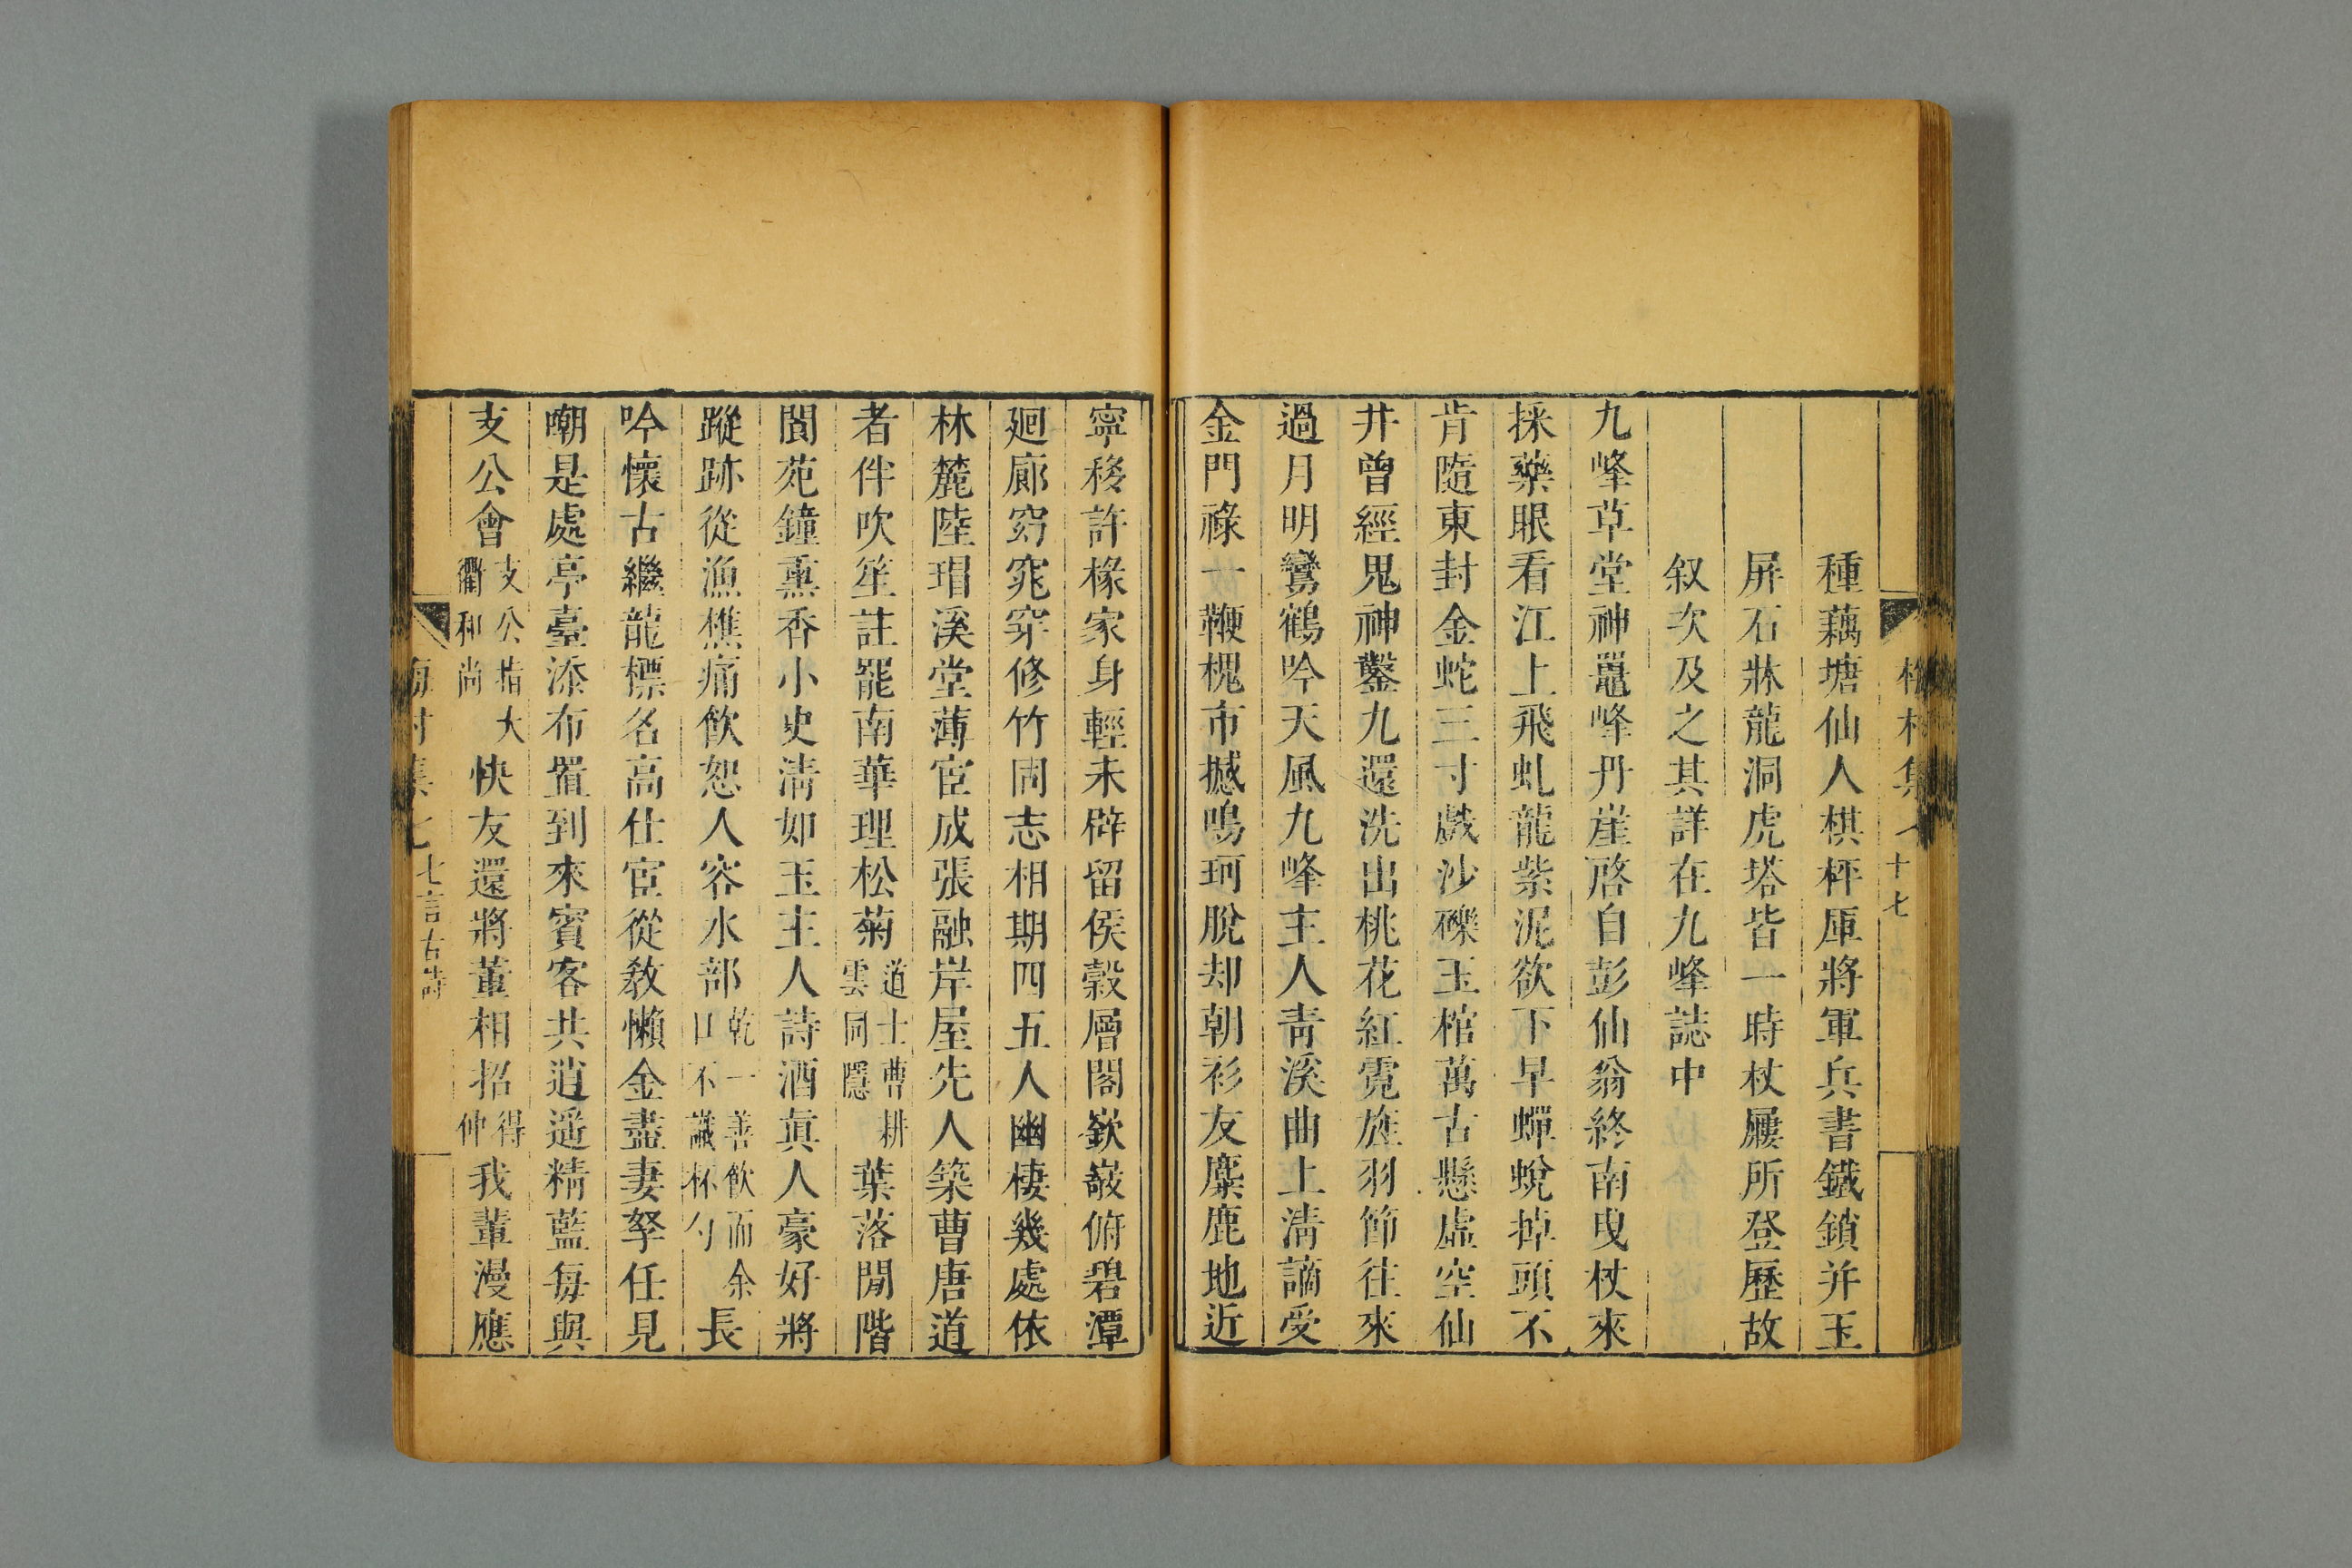 十七
種藕塘仙人棋枰厓將軍兵書鐵鎖并玉
屏石牀龍洞虎塔皆一時杖屨所登歷故
叙次及之其詳在九峰誌中
九峰草堂神鼉峰丹崖啓自彭仙翁終南曳杖來
採藥眼看江上飛虬龍紫泥欲下早蟬蛻掉頭不
肯隨東封金蛇三寸戲沙礫玉棺萬古懸虛空仙
井曾經鬼神鑿九還洗出桃花紅霓旌羽節往來
過月明鸞鶴吟天風九峰主人青溪曲上清謫受
金門祿一鞭槐市撼鳴珂脫却朝衫友麋鹿地近
寧移許椽家身輕未辟留侯穀層閣嶔巖俯碧潭
廻廊窈窕穿修竹同志相期四五人幽棲幾處依
林麓陸瑁溪堂薄宦成張融岸屋先人築曹唐道
者伴吹笙註罷南華理松菊道士曹耕雲同隱葉落閒階
閬苑鐘熏香小史清如玉主人詩酒眞人豪好將
蹤跡從漁樵痛飲恕人容水部乾一善飲而余口不識杯勺長
吟懷古繼龍標名高仕宦從教懶金盡妻孥任見
嘲是處亭臺添布置到來賓客共逍遥精藍每與
支公會支公指大衢和尚快友還將董相招得仲我輩漫應
七言古詩